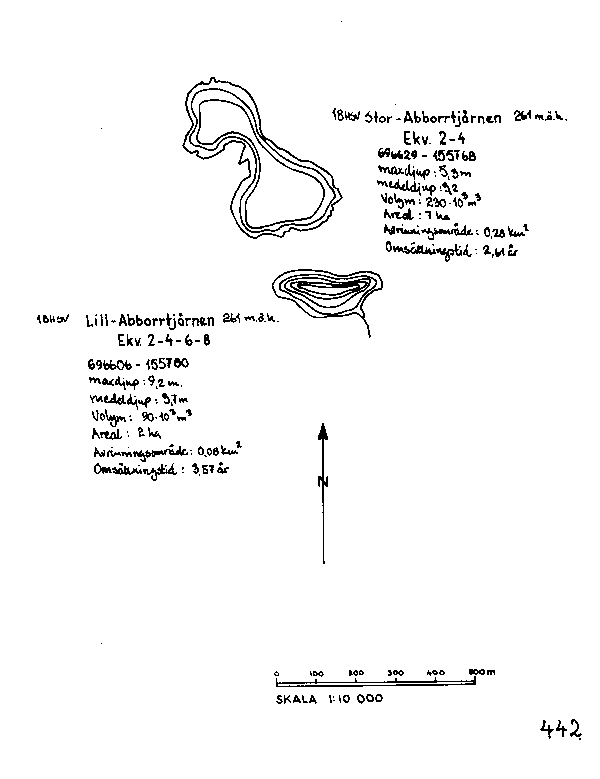 18HSV Stor-Abborrtjärnen 261 m.ö.h.
Ekv. 2-4
696629 - 155768
maxdjup : 5,3 m
medeldjup : 3,2
Volym : 230·10³ m³
Areal : 7 ha
Avrinningsområde : 0,28 km²
Omsättningstid : 2,61 år
18HSV Lill-Abborrtjärnen 261 m.ö.h.
Ekv. 2-4-6-8
696606 - 155780
maxdjup : 9,2 m.
medeldjup : 3,7 m
Volym : 90·10³ m³
Areal : 2 ha
Avrinningsområde : 0,08 km²
Omsättningstid : 3,57 år
N
0 100 200 300 400 500 m
SKALA 1:10 000
442